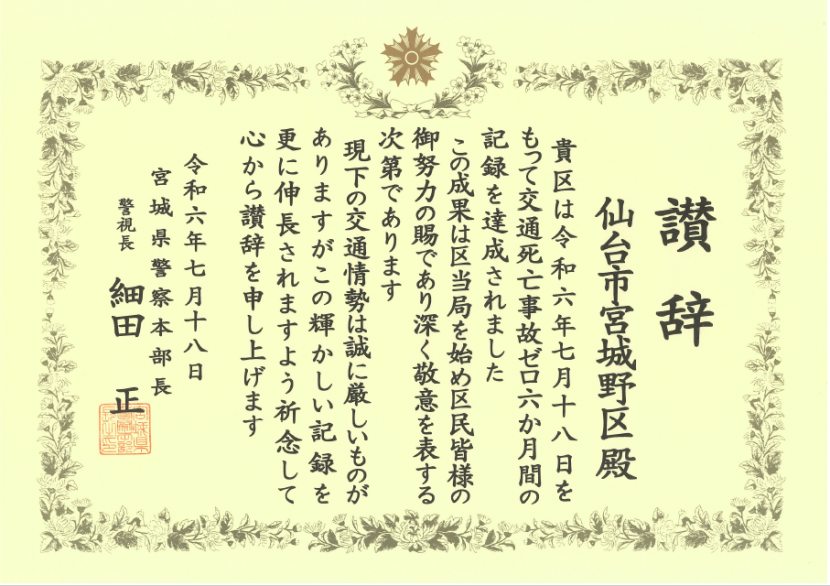 讃辞
仙台市宮城野区殿
貴区は令和六年七月十八日を
もって交通死亡事故ゼロ六か月間の
記録を達成されました
この成果は区当局を始め区民皆様の
御努力の賜であり深く敬意を表する
次第であります
現下の交通情勢は誠に厳しいものが
ありますがこの輝かしい記録を
更に伸長されますよう祈念して
心から讃辞を申し上げます
令和六年七月十八日
宮城県警察本部長
警視長 細田正